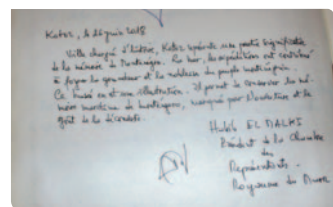 Kotor, le 26 juin 2018
Ville chargée d'histoire, Kotor représente une partie significative
de la mémoire du Monténégro. La mer, les expéditions ont contribué
à forger la grandeur et la noblesse du peuple monténégrin.
Ce musée en est une illustration, il permet de conserver la mé-
moire maritime du Monténégro, marqué par l'Aventure et le
goût de la découverte.
Habib EL MALKI
Président de la Chambre
des
Représentants.
Royaume du Maroc